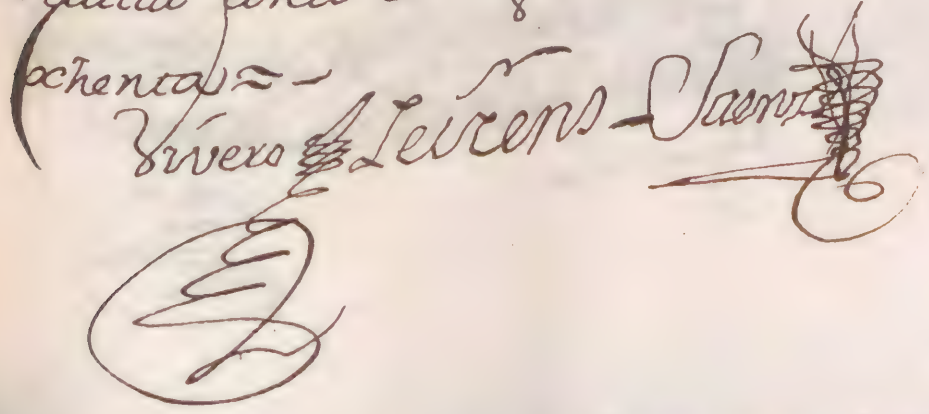 ochenta = -
Vivero Leirens - Saenz